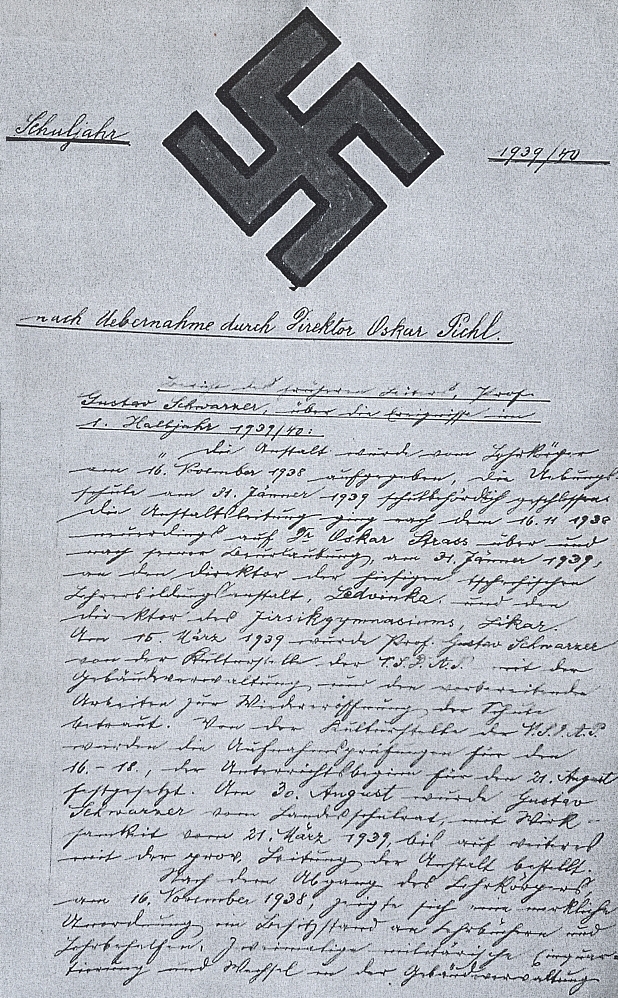 Schuljahr
1939/40
nach Uebernahme durch Direktor Oskar Pichl.
des früheren Leiters, Prof.
Gustav Schwarzer, über die Ereignisse im
1. Halbjahr 1939/40:
" Die Anstalt wurde vom Lehrkörper
am 16. November 1938 aufgegeben, die Uebungs-
schule am 31. Jänner 1939 schulbehördlich geschlossen.
Die Anstaltsleitung ging nach dem 16.11 1938
neuerdings auf Dr Oskar Strass über und
nach seiner Beurlaubung, am 31. Jänner 1939,
an den Direktor der hiesigen tschechischen
Lehrerbildungsanstalt, Ledvinka, und den
Direktor des Jirsikgymnasiums, Sikar.
Am 15. März 1939 wurde Prof. Gustav Schwarzer
von der Kulturstelle der mit der
Gebäudeverwaltung und den vorbereitenden
Arbeiten zur Wiedereröffnung der Schule
betraut. Von der Kulturstelle der
wurden die Aufnahmsprüfungen für den
16.-18., der Unterrichtsbeginn für den 21. August
festgesetzt. Am 30. August wurde Gustav
Schwarzer vom Landesschulrat, mit Wirk-
samkeit vom 21. März 1939, bis auf weiteres
mit der prov. Leitung der Anstalt bestellt.
Nach dem Abgang des Lehrkörpers
am 16. November 1938 zeigte sich eine merkliche
Unordnung im Besitzstand an Lehrbüchern und
Lehrbehelfen; zweimalige militärische Einquar-
tierung und Wechsel in der Gebäudeverwaltung